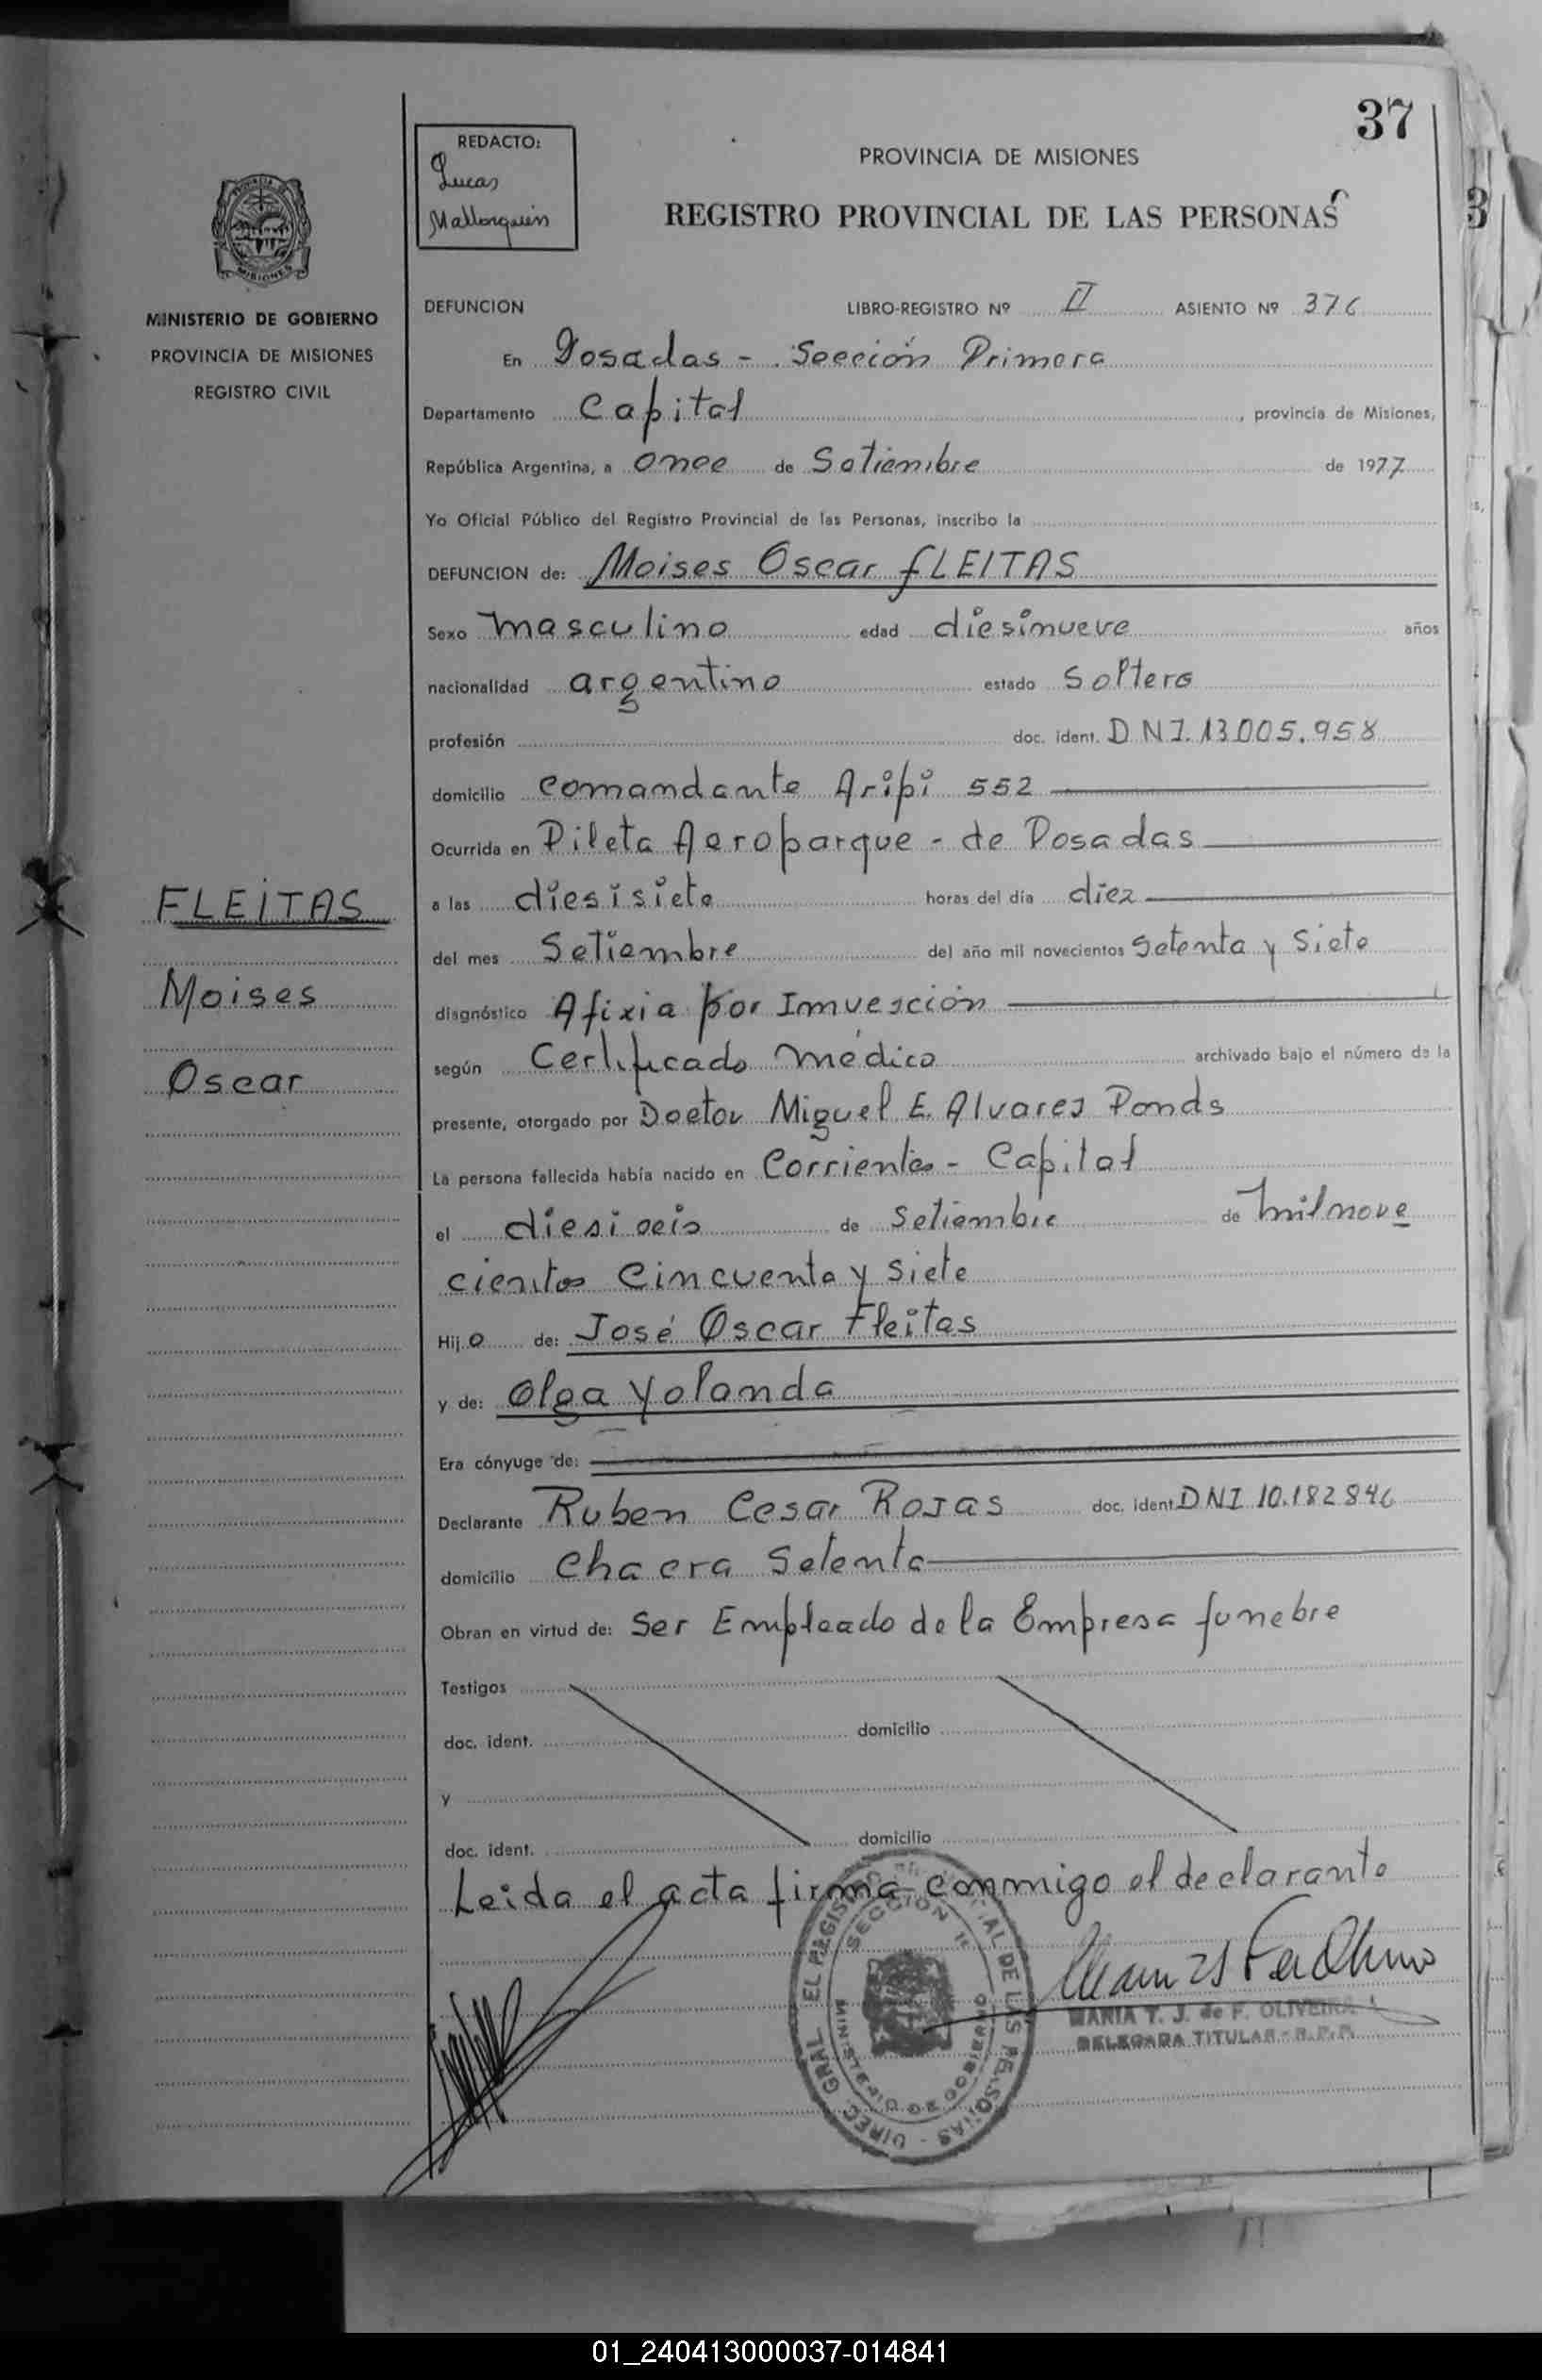 37
REDACTO:
Lucas
Mallorquin
PROVINCIA DE MISIONES
REGISTRO PROVINCIAL DE LAS PERSONAS
MINISTERIO DE GOBIERNO
PROVINCIA DE MISIONES
REGISTRO CIVIL
DEFUNCION LIBRO-REGISTRO Nº II ASIENTO Nº 376
En Posadas - Sección Primera
Departamento Capital, provincia de Misiones,
República Argentina, a once de Setiembre de 1977
Yo Oficial Público del Registro Provincial de las Personas, inscribo la
DEFUNCION de: Moises Oscar FLEITAS
Sexo masculino edad diesinueve años
nacionalidad argentino estado soltero
profesión doc. ident. DNI. 13.005.958
domicilio comandante Aripi 552
Ocurrida en Pileta Aeroparque - de Posadas
a las diesisiete horas del día diez
del mes Setiembre del año mil novecientos setenta y siete
diagnóstico Afixia por Imverción
según Certificado médico archivado bajo el número de la
presente, otorgado por Doctor Miguel E. Alvares Ponds
La persona fallecida había nacido en Corrientes - Capital
el diesiseis de Setiembre de milnove
cientos cincuenta y siete
Hijo de: José Oscar Fleitas
y de: Olga Yolanda
Era cónyuge de:
Declarante Ruben Cesar Rojas doc. ident DNI 10.182846
domicilio Chacra Setenta
Obran en virtud de: Ser Empleado de la Empresa funebre
Testigos
doc. ident. domicilio
y
doc. ident. domicilio
Leida el acta firma conmigo el declarante
FLEITAS
Moises
Oscar
SECCION 1ª
MARIA T. J. de F. OLIVEIRA
DELEGADA TITULAR - R.P.P.
01_240413000037-014841